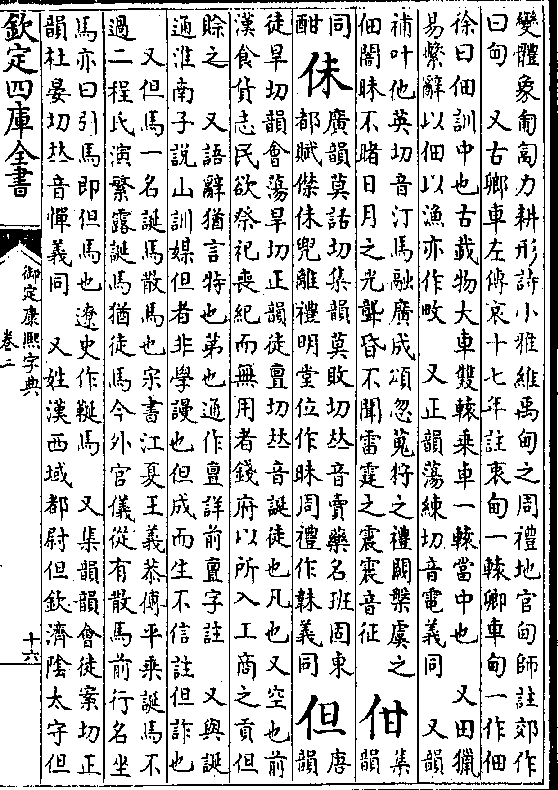 變體象匍匐力耕形詩小雅維禹甸之周禮地官甸師註郊作
曰甸　又古卿車左傳哀十七年註衷甸一轅卿車甸一作佃
徐曰佃訓中也古載物大車雙轅乘車一轅當中也　又田獵
易繫辭以佃以漁亦作畋　又正韻蕩練切音電義同　又韻
補叶他英切音汀馬融廣成頌忽蒐狩之禮闕槃虞之
佃闇昧不睹日月之光聾昏不聞雷霆之震震音征
㑲集韻
同酣
佅廣韻莫話切集韻莫敗切𠀤音賣藥名班固東
都賦㑣佅兜離禮明堂位作昧周禮作韎義同
但唐韻
徒旱切韻會蕩旱切正韻徒亶切𠀤音誕徒也凡也又空也前
漢食貨志民欲祭祀喪紀而無用者錢府以所入工商之貢但
賒之　又語辭猶言特也第也通作亶詳前亶字註　又與誕
通淮南子說山訓媒但者非學謾也但成而生不信註但詐也
又但馬一名誕馬散馬也宋書江夏王義恭傳平乘誕馬不
過二程氏演繁露誕馬猶徒馬今外官儀從有散馬前行名坐
馬亦曰引馬即但馬也遼史作䩥馬　又集韻韻會徒案切正
韻杜晏切𠀤音憚義同　又姓漢西域都尉但欽濟陰太守但
欽定四庫全書
御定康熙字典
卷二
十六